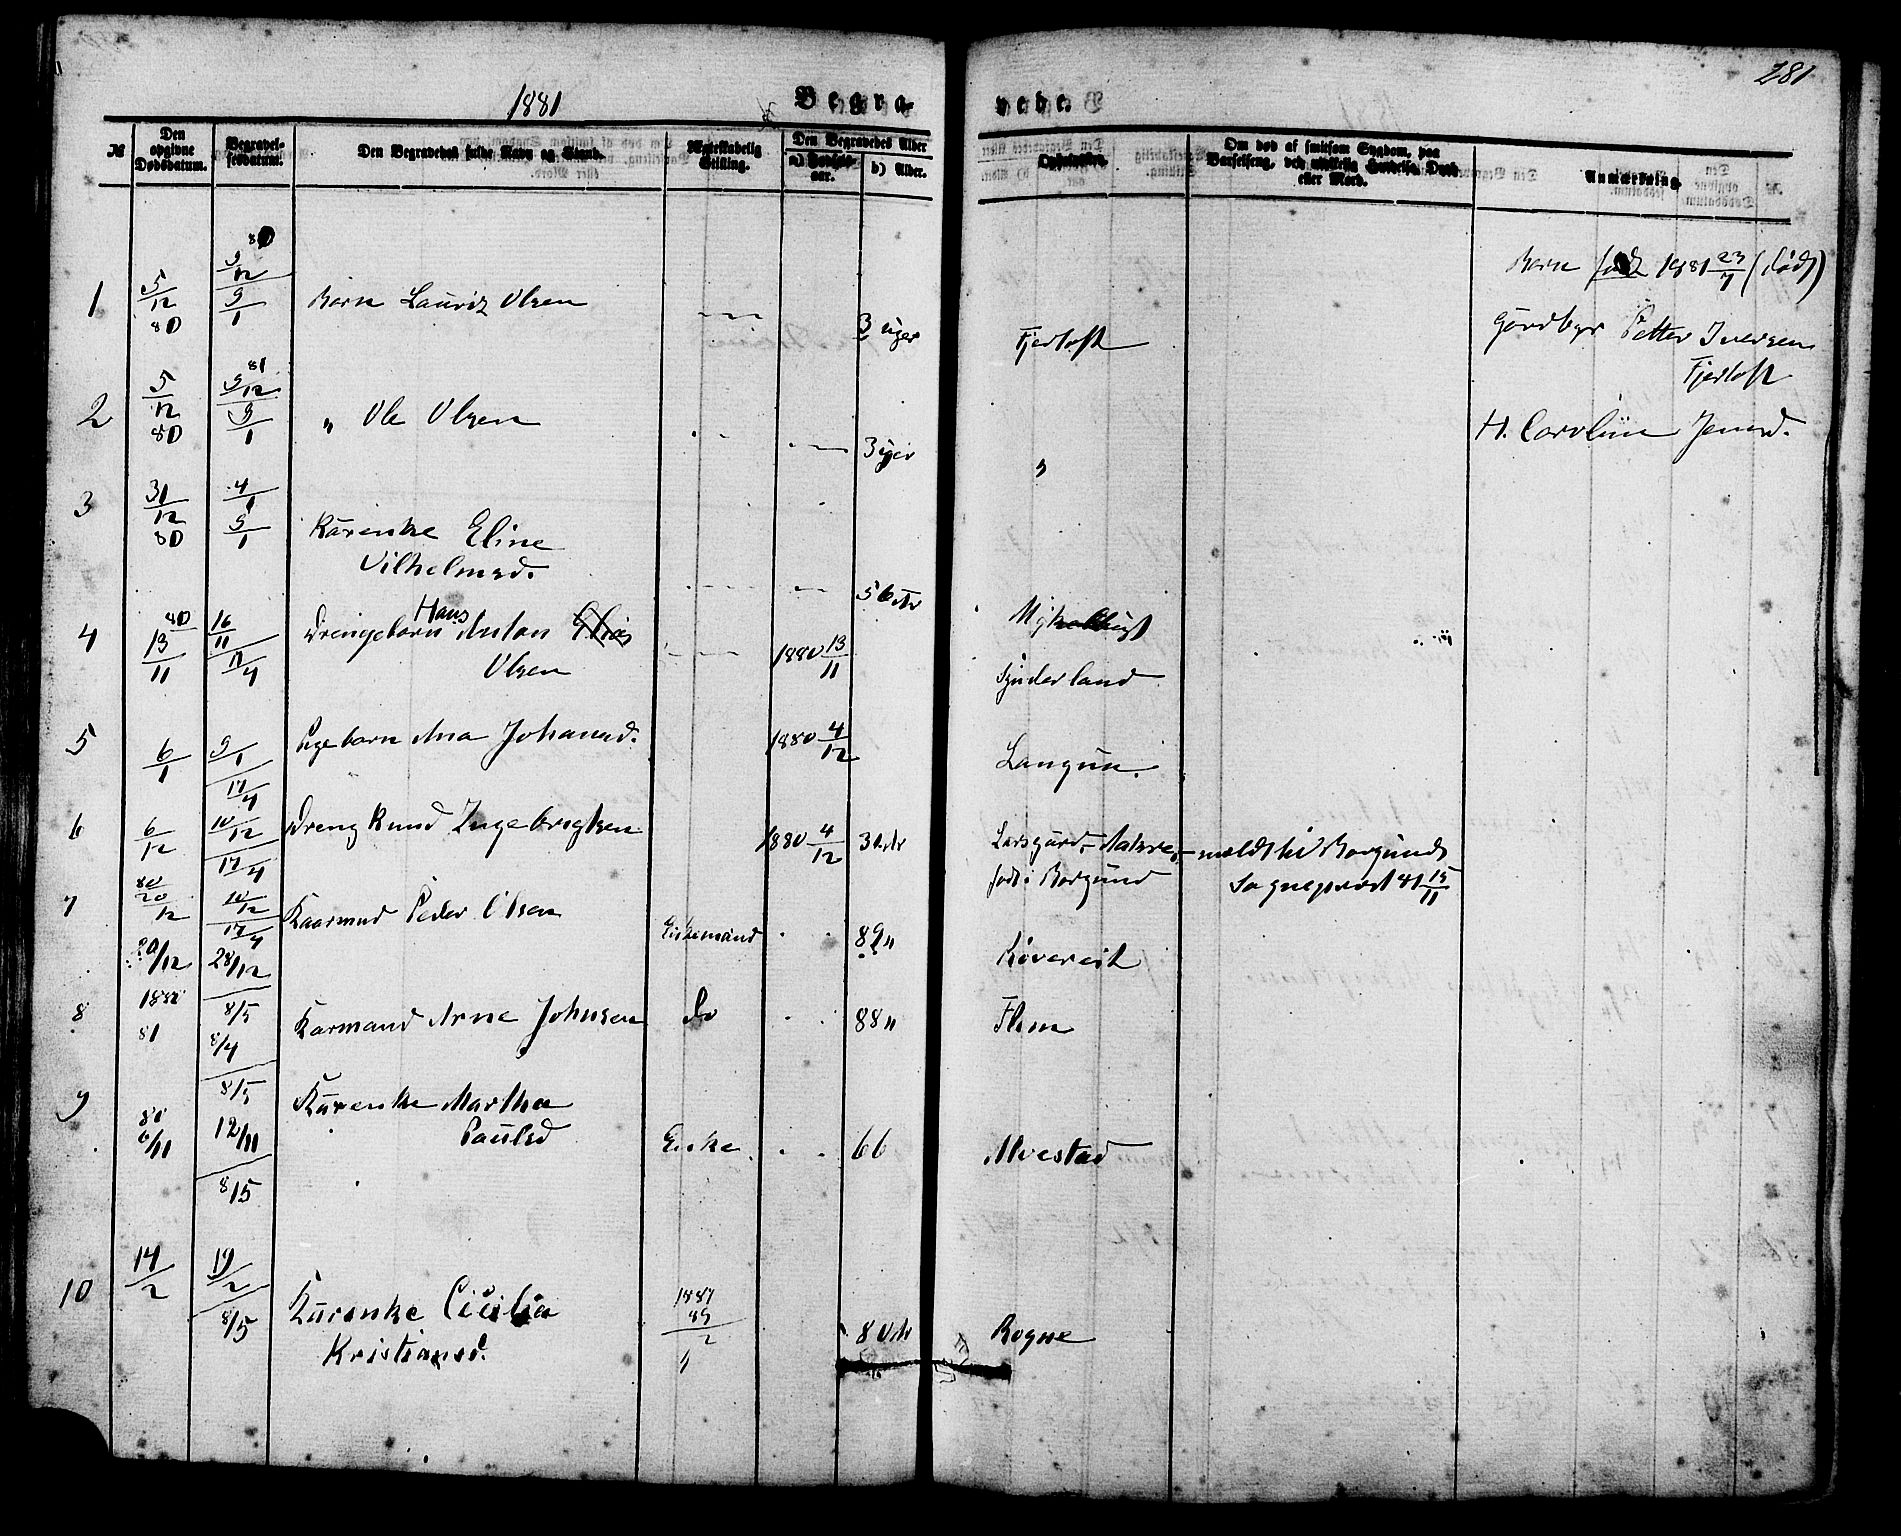 281
1881
Begra-
vede.
№
Den opgivne Dødsdatum.
Begravelsesdatum.
Den Begravedes fulde Navn og Stand.
Borgerlig Stilling.
Den Begravedes Alder
a) Fødselsaar.
b) Alder.
Opholdssted.
Om død af smitsom Sygdom, paa Barselseng, ved ulykkelig Hændelse, Drab eller Mord.
Anmærkning.
1
5/12 80
80 9/12 9/1
Barn Lauritz Olsen
3 uger
Fjørtoft
Barn født 1881 23/7 (død)
Gårdbgr Petter Iversen
Fjørtoft
H. Caroline Jensd.
2
5/12 80
81 9/12 9/1
" Ole Olsen
3 uger
"
3
31/12 80
4/1 9/1
Kårenke Eline
Vilhelmsd.
56 År
4
80 13/11
16/11 17/4
Drengebarn Hans Anton
Olsen
1880 13/11
Synderland
5
6/1
9/1 17/4
Pigebarn Ana Johansd.
1880 4/12
Langun.
6
6/12
10/12 17/4
Dreng Knud Ingebrigtsen
1880 4/12
Borgund
meldt til Borgunds
Sognepræst 81 15/11
7
80 20/12
10/12 17/4
20/12
28/12
Kaarmand Peder Olsen
Enkemand
89 "
8
81
8/5
8/4
Karmand Arne Johnsen
do
88 "
Flem
9
80
6/11
8/5
12/11
8/5
Kårenke Martha
Paulsd
Enke
66
Alvestad
10
14/2
19/2
8/5
Kårenke Cicilia
Kristiansd.
80 År
Rogne